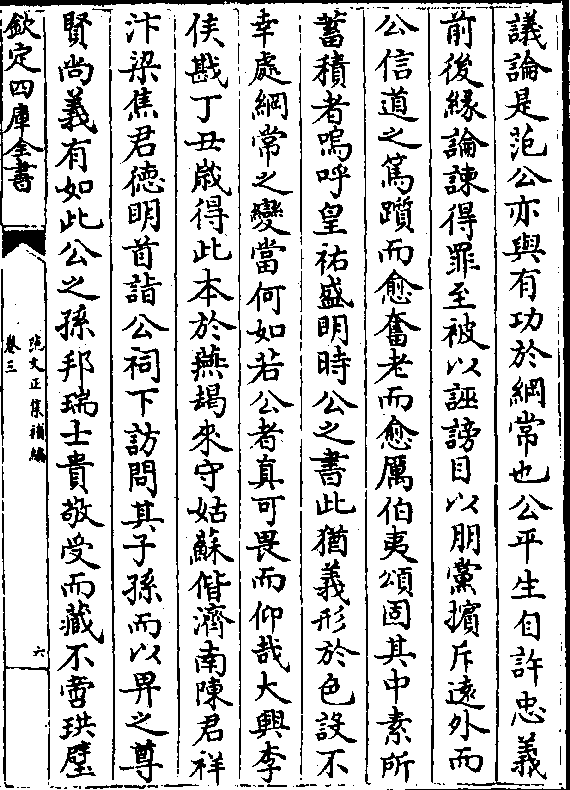 議論是范公亦與有功於綱常也公平生自許忠義
前後緣論諫得罪至被以誣謗目以朋黨擯斥遠外而
公信道之篤躓而愈奮老而愈厲伯夷頌固其中素所
蓄積者嗚呼皇祐盛明時公之書此猶義形於色設不
幸處綱常之變當何如若公者真可畏而仰哉大興李
侯戡丁丑歲得此本於燕朅來守姑蘇偕濟南陳君祥
汴梁焦君德明首詣公祠下訪問其子孫而以畀之尊
賢尚義有如此公之孫邦瑞士貴敬受而藏不啻珙璧
欽定四庫全書
范文正集補編
卷三
六